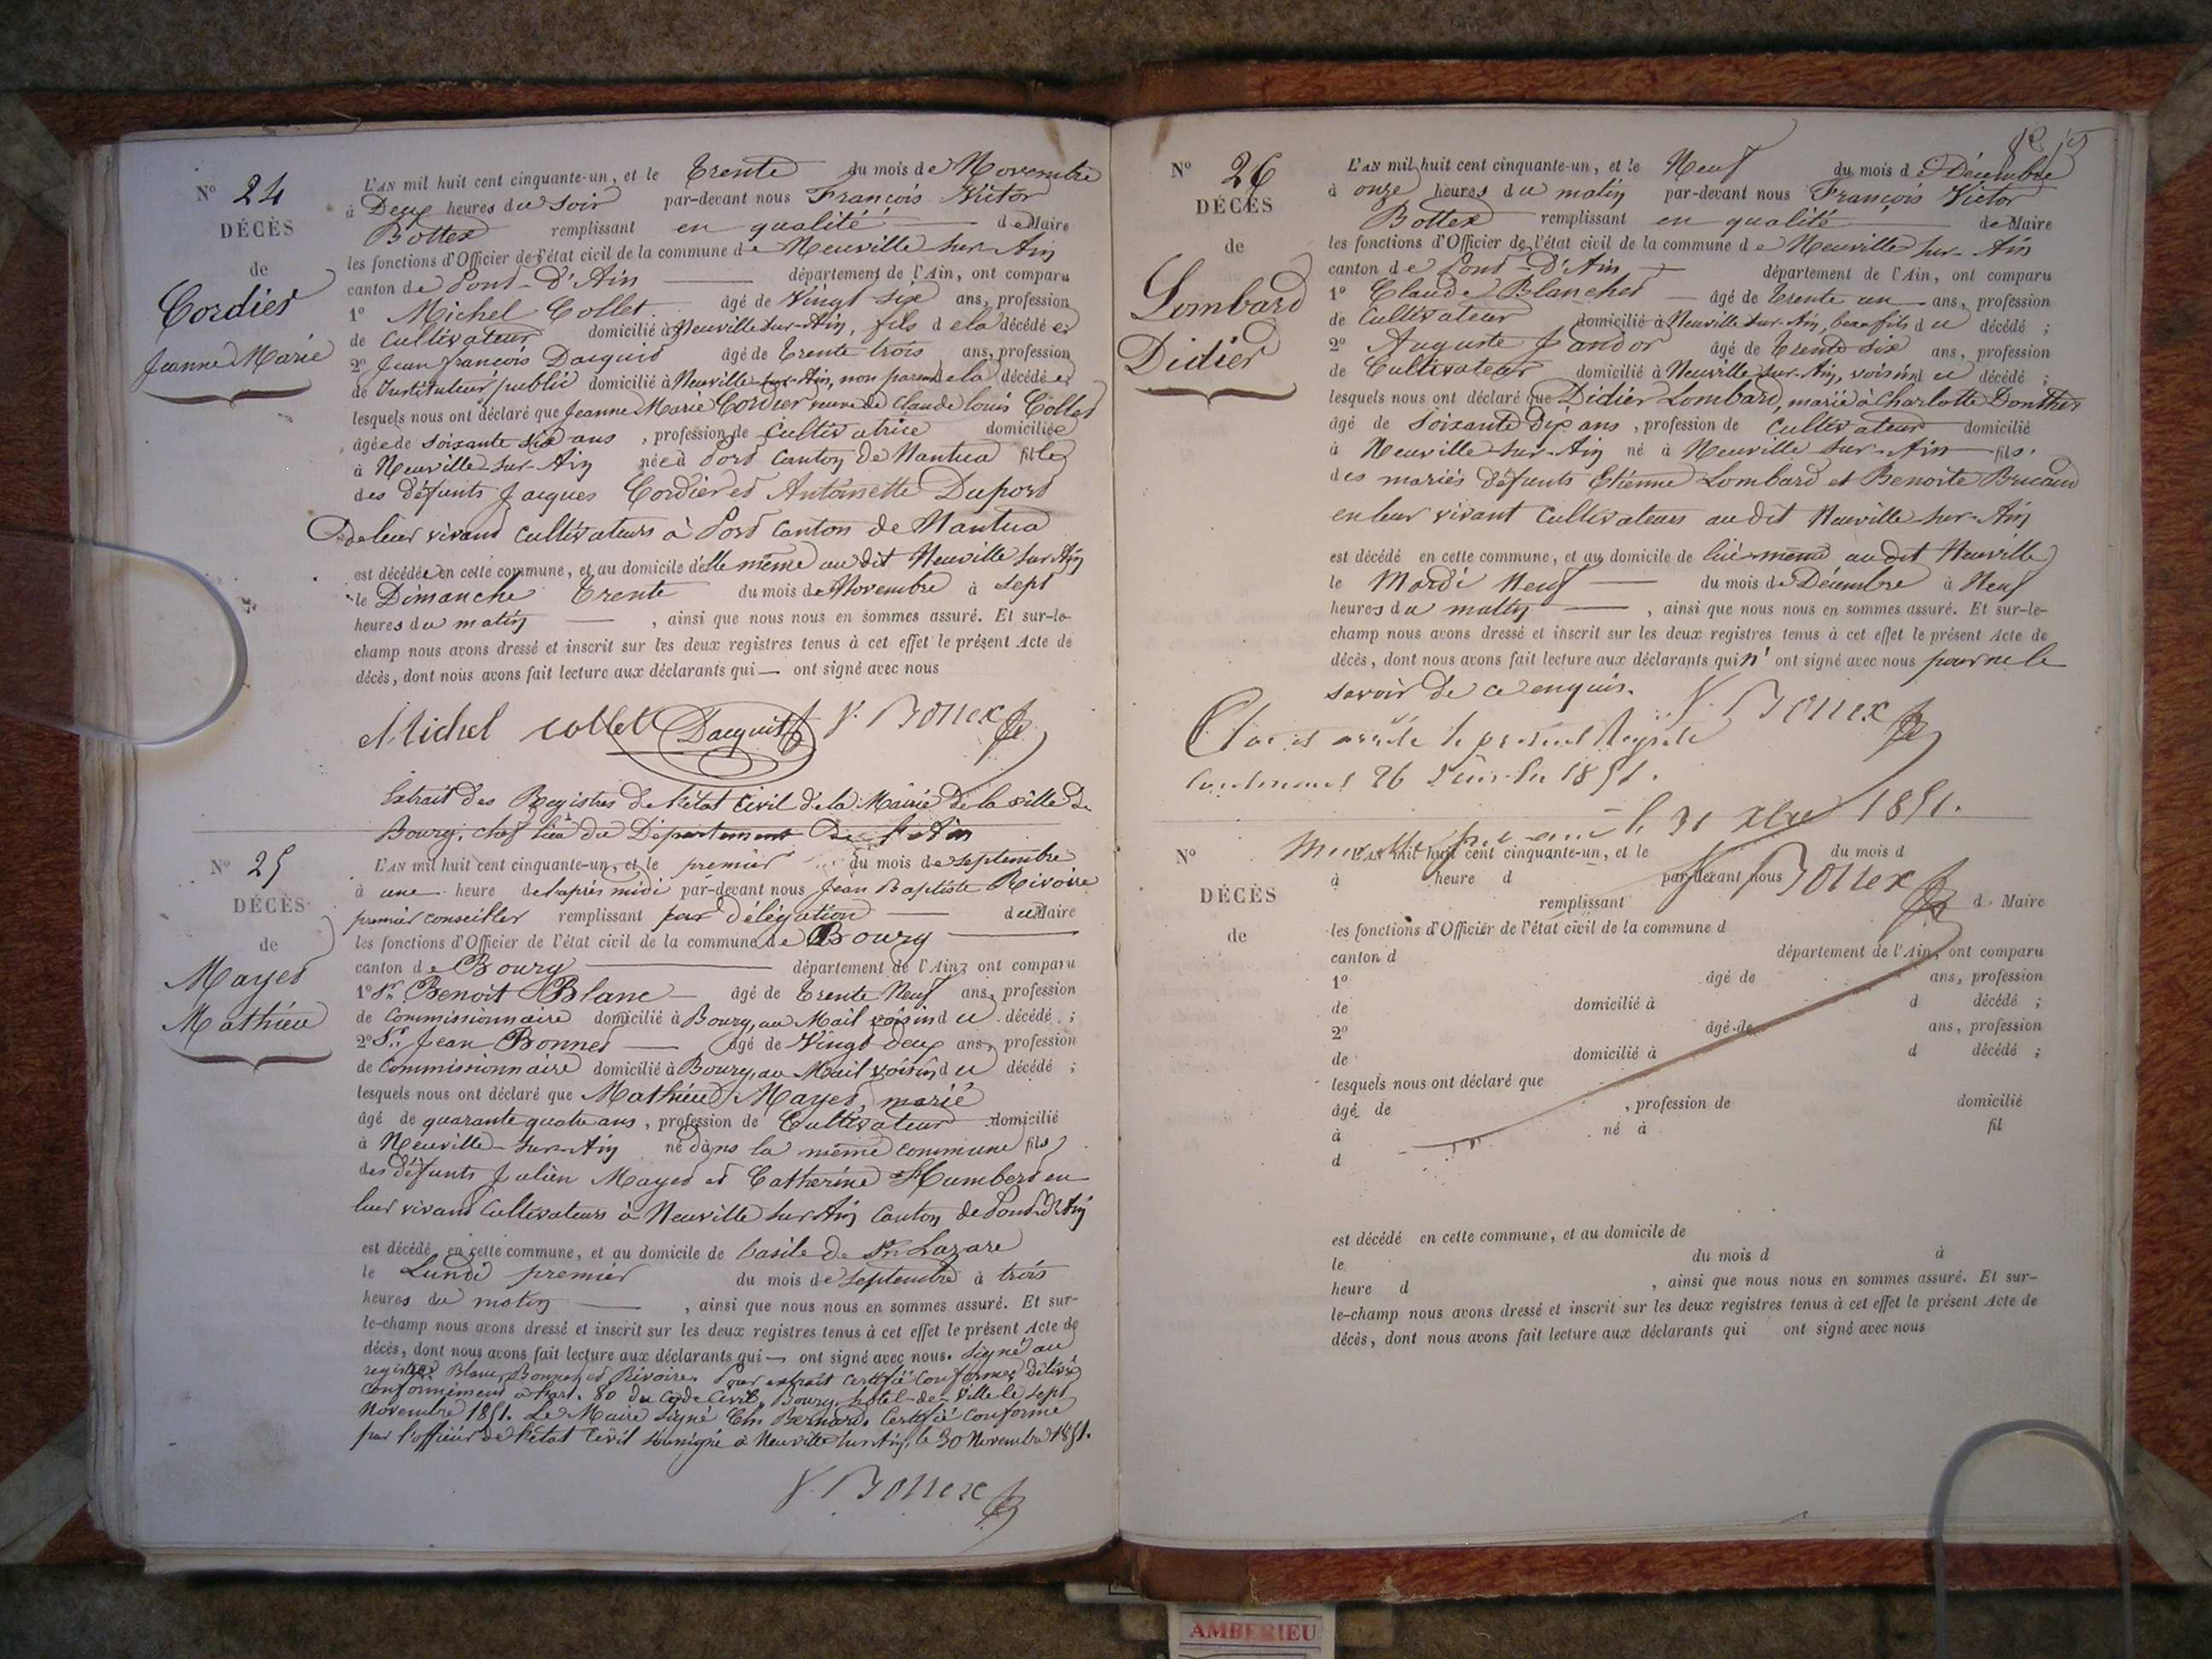 N° 24
DÉCÈS
de
Cordier
Jeanne Marie
L'AN mil huit cent cinquante-un, et le Trente du mois de Novembre
à Deux heures du Soir par-devant nous François Victor
Bottex remplissant en qualité de Maire
les fonctions d'Officier de l'état civil de la commune de Neuville sur Ain
canton de Pont-D'Ain département de l'Ain, ont comparu
1° Michel Collet âgé de Vingt six ans, profession
de Cultivateur domicilié à Neuville sur-Ain, fils de la décédée;
2° Jean françois Dacquit âgé de Trente trois ans, profession
de Instituteur public domicilié à Neuville sur-Ain, non parent de la décédée;
lesquels nous ont déclaré que Jeanne Marie Cordier veuve de Claude louis Collet
âgée de soixante six ans, profession de Cultivatrice domiciliée
à Neuville-sur-Ain née à Port Canton de Nantua fille
des défunts Jacques Cordier et Antoinette Duport
de leur vivant cultivateurs à Port Canton de Nantua
est décédée en cette commune, et au domicile d'elle même au dit Neuville sur Ain
le Dimanche Trente du mois de Novembre à sept
heures du matin, ainsi que nous nous en sommes assuré. Et sur-le-
champ nous avons dressé et inscrit sur les deux registres tenus à cet effet le présent Acte de
décès, dont nous avons fait lecture aux déclarants qui — ont signé avec nous
Michel collet Dacquit V. Bottex
Extrait des Registres de l'état Civil de la Mairie de la ville de
Bourg, chef lieu du Département de l'Ain
N° 25
DÉCÈS
de
Mayet
Mathieu
L'AN mil huit cent cinquante-un, et le premier du mois de septembre
à une heure de l'après midi par-devant nous Jean Baptiste Rivoire
premier conseiller remplissant par délégation du Maire
les fonctions d'Officier de l'état civil de la commune de Bourg
canton de Bourg département de l'Ain, ont comparu
1° Sr. Benoit Blanc âgé de Trente Neuf ans, profession
de Commissionnaire domicilié à Bourg, au Mail voisin du décédé;
2° Sr. Jean Bonnet âgé de Vingt deux ans, profession
de Commissionnaire domicilié à Bourg, au Mail voisin du décédé;
lesquels nous ont déclaré que Mathieu Mayet, marié
âgé de quarante quatre ans, profession de Cultivateur domicilié
à Neuville-sur-Ain né dans la même commune fils
des défunts Julien Mayet et Catherine Humbert en
leur vivant Cultivateurs à Neuville sur Ain Canton de Pont-d'Ain
est décédé en cette commune, et au domicile de l'asile de St. Lazare
le Lundi premier du mois de septembre à trois
heures du matin, ainsi que nous nous en sommes assuré. Et sur-
le-champ nous avons dressé et inscrit sur les deux registres tenus à cet effet le présent Acte de
décès, dont nous avons fait lecture aux déclarants qui — ont signé avec nous. Signé au
registre Blanc, Bonnet et Rivoire. Pour extrait certifié conforme, délivré
conformément à l'art. 80 du Code Civil, Bourg, hôtel-de-Ville le sept
Novembre 1851. Le Maire signé Ch. Bernard. Certifié conforme
par l'officier de l'état Civil soussigné à Neuville sur Ain, le 30 Novembre 1851.
V. Bottex
N° 26
DÉCÈS
de
Lombard
Didier
L'AN mil huit cent cinquante-un, et le Neuf du mois de Décembre
à onze heures du matin par-devant nous François Victor
Bottex remplissant en qualité de Maire
les fonctions d'Officier de l'état civil de la commune de Neuville sur-Ain
canton de Pont-D'Ain département de l'Ain, ont comparu
1° Claude Blanchet âgé de Trente un ans, profession
de Cultivateur domicilié à Neuville sur-Ain, beau fils du décédé;
2° Auguste Jandor âgé de Trente six ans, profession
de Cultivateur domicilié à Neuville sur-Ain, voisin du décédé;
lesquels nous ont déclaré que Didier Lombard, marié à Charlotte Donthier
âgé de Soixante Dix ans, profession de Cultivateur domicilié
à Neuville sur-Ain né à Neuville sur-Ain fils
des mariés défunts Etienne Lombard et Benoite Bricaud
en leur vivant Cultivateurs au dit Neuville sur-Ain
est décédé en cette commune, et au domicile de lui-même au dit Neuville
le Mardi Neuf du mois de Décembre à Neuf
heures du matin, ainsi que nous nous en sommes assuré. Et sur-le-
champ nous avons dressé et inscrit sur les deux registres tenus à cet effet le présent Acte de
décès, dont nous avons fait lecture aux déclarants qui n'ont signé avec nous pour ne le
savoir de ce enquis. V. Bottex
Clos et arrêté le présent Registre
contenant 26 1851.
le 31 Xbre 1851.
V. Bottex
N°
DÉCÈS
de
L'AN mil huit cent cinquante-un, et le du mois d
à heure d par-devant nous
remplissant d Maire
les fonctions d'Officier de l'état civil de la commune d
canton d département de l'Ain, ont comparu
1° âgé de ans, profession
de domicilié à d décédé;
2° âgé de ans, profession
de domicilié à d décédé;
lesquels nous ont déclaré que
âgé de, profession de domicilié
à né à fil
d
est décédé en cette commune, et au domicile de
le du mois d à
heure d, ainsi que nous nous en sommes assuré. Et sur-
le-champ nous avons dressé et inscrit sur les deux registres tenus à cet effet le présent Acte de
décès, dont nous avons fait lecture aux déclarants qui ont signé avec nous
AMBERIEU